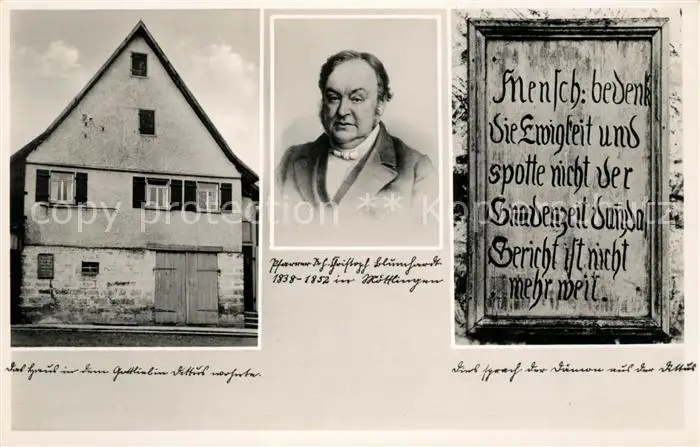 Pfarrer Joh. Christoph Blumhardt
1838-1852 in Möttlingen
Mensch: bedenk
die Ewigkeit und
spotte nicht der
Gnadenzeit
Gericht ist nicht
mehr weit.
Das Haus in dem Gottliebin Dittus wohnte.
Dies sprach der Dämon aus der Dittus
copyright
copyright